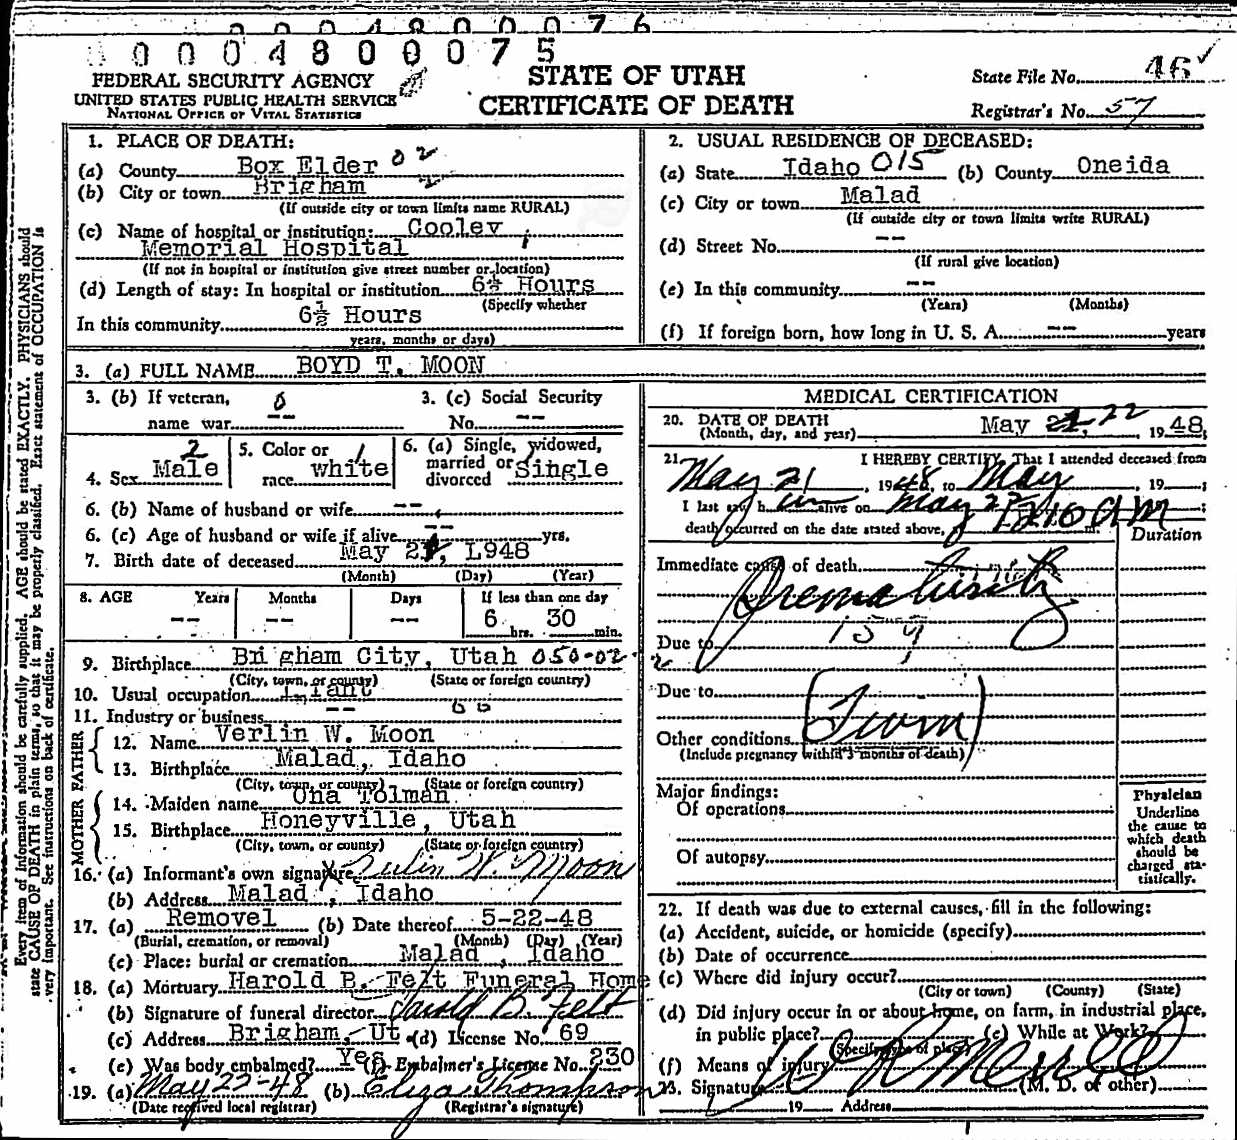 0 0 0 4 8 0 0 0 7 6
0 0 0 4 8 0 0 0 7 5
FEDERAL SECURITY AGENCY
UNITED STATES PUBLIC HEALTH SERVICE
NATIONAL OFFICE OF VITAL STATISTICS
STATE OF UTAH
CERTIFICATE OF DEATH
State File No. 46
Registrar's No. 57
Every item of information should be carefully supplied. AGE should be stated EXACTLY. PHYSICIANS should
state CAUSE OF DEATH in plain terms, so that it may be properly classified. Exact statement of OCCUPATION is
very important. See instructions on back of certificate.
1. PLACE OF DEATH:
(a) County Box Elder 02
(b) City or town Brigham 2
(If outside city or town limits name RURAL)
(c) Name of hospital or institution: Cooley
Memorial Hospital
(If not in hospital or institution give street number or location)
(d) Length of stay: In hospital or institution 6½ Hours
(Specify whether
In this community 6½ Hours
years, months or days)
2. USUAL RESIDENCE OF DECEASED:
(a) State Idaho 015 (b) County Oneida
(c) City or town Malad
(If outside city or town limits write RURAL)
(d) Street No. --
(If rural give location)
(e) In this community --
(Years) (Months)
(f) If foreign born, how long in U. S. A. -- years
3. (a) FULL NAME BOYD T. MOON
3. (b) If veteran, 0
name war --
3. (c) Social Security
No. --
4. Sex Male 2
5. Color or 1
race white
6. (a) Single, widowed,
married or
divorced Single
6. (b) Name of husband or wife --
6. (c) Age of husband or wife if alive -- yrs.
7. Birth date of deceased May 21, 1948
(Month) (Day) (Year)
8. AGE Years Months Days If less than one day
-- -- -- 6 30
hrs. min.
9. Birthplace Brigham City, Utah 050-02
(City, town, or county) (State or foreign country)
10. Usual occupation Infant
11. Industry or business --
FATHER
12. Name Verlin W. Moon
13. Birthplace Malad, Idaho
(City, town, or county) (State or foreign country)
MOTHER
14. Maiden name Una Tolman
15. Birthplace Honeyville, Utah
(City, town, or county) (State or foreign country)
16. (a) Informant's own signature X Verlin W. Moon
(b) Address Malad, Idaho
17. (a) Removel (b) Date thereof 5-22-48
(Burial, cremation, or removal) (Month) (Day) (Year)
(c) Place: burial or cremation Malad, Idaho
18. (a) Mortuary Harold B. Felt Funeral Home
(b) Signature of funeral director Harold B. Felt
(c) Address Brigham, Ut. (d) License No. 69
(e) Was body embalmed? Yes (f) Embalmer's License No. 230
19. (a) May 22-48 (b) Eliza Thompson
(Date received local registrar) (Registrar's signature)
MEDICAL CERTIFICATION
20. DATE OF DEATH
(Month, day, and year) May 22, 1948
21. I HEREBY CERTIFY, That I attended deceased from
May 21, 1948, to May, 19
I last saw him alive on May 22
death occurred on the date stated above, 12:10 am m.
Duration
Immediate cause of death
Prematurity
159
Due to
Due to
(Twin)
Other conditions
(Include pregnancy within 3 months of death)
Major findings:
Of operations
Of autopsy
Physician
Underline
the cause to
which death
should be
charged sta-
tistically.
22. If death was due to external causes, fill in the following:
(a) Accident, suicide, or homicide (specify)
(b) Date of occurrence
(c) Where did injury occur?
(City or town) (County) (State)
(d) Did injury occur in or about home, on farm, in industrial place,
in public place? (e) While at Work?
(Specify type of place)
(f) Means of injury
23. Signature Merrell (M. D. or other)
19 Address